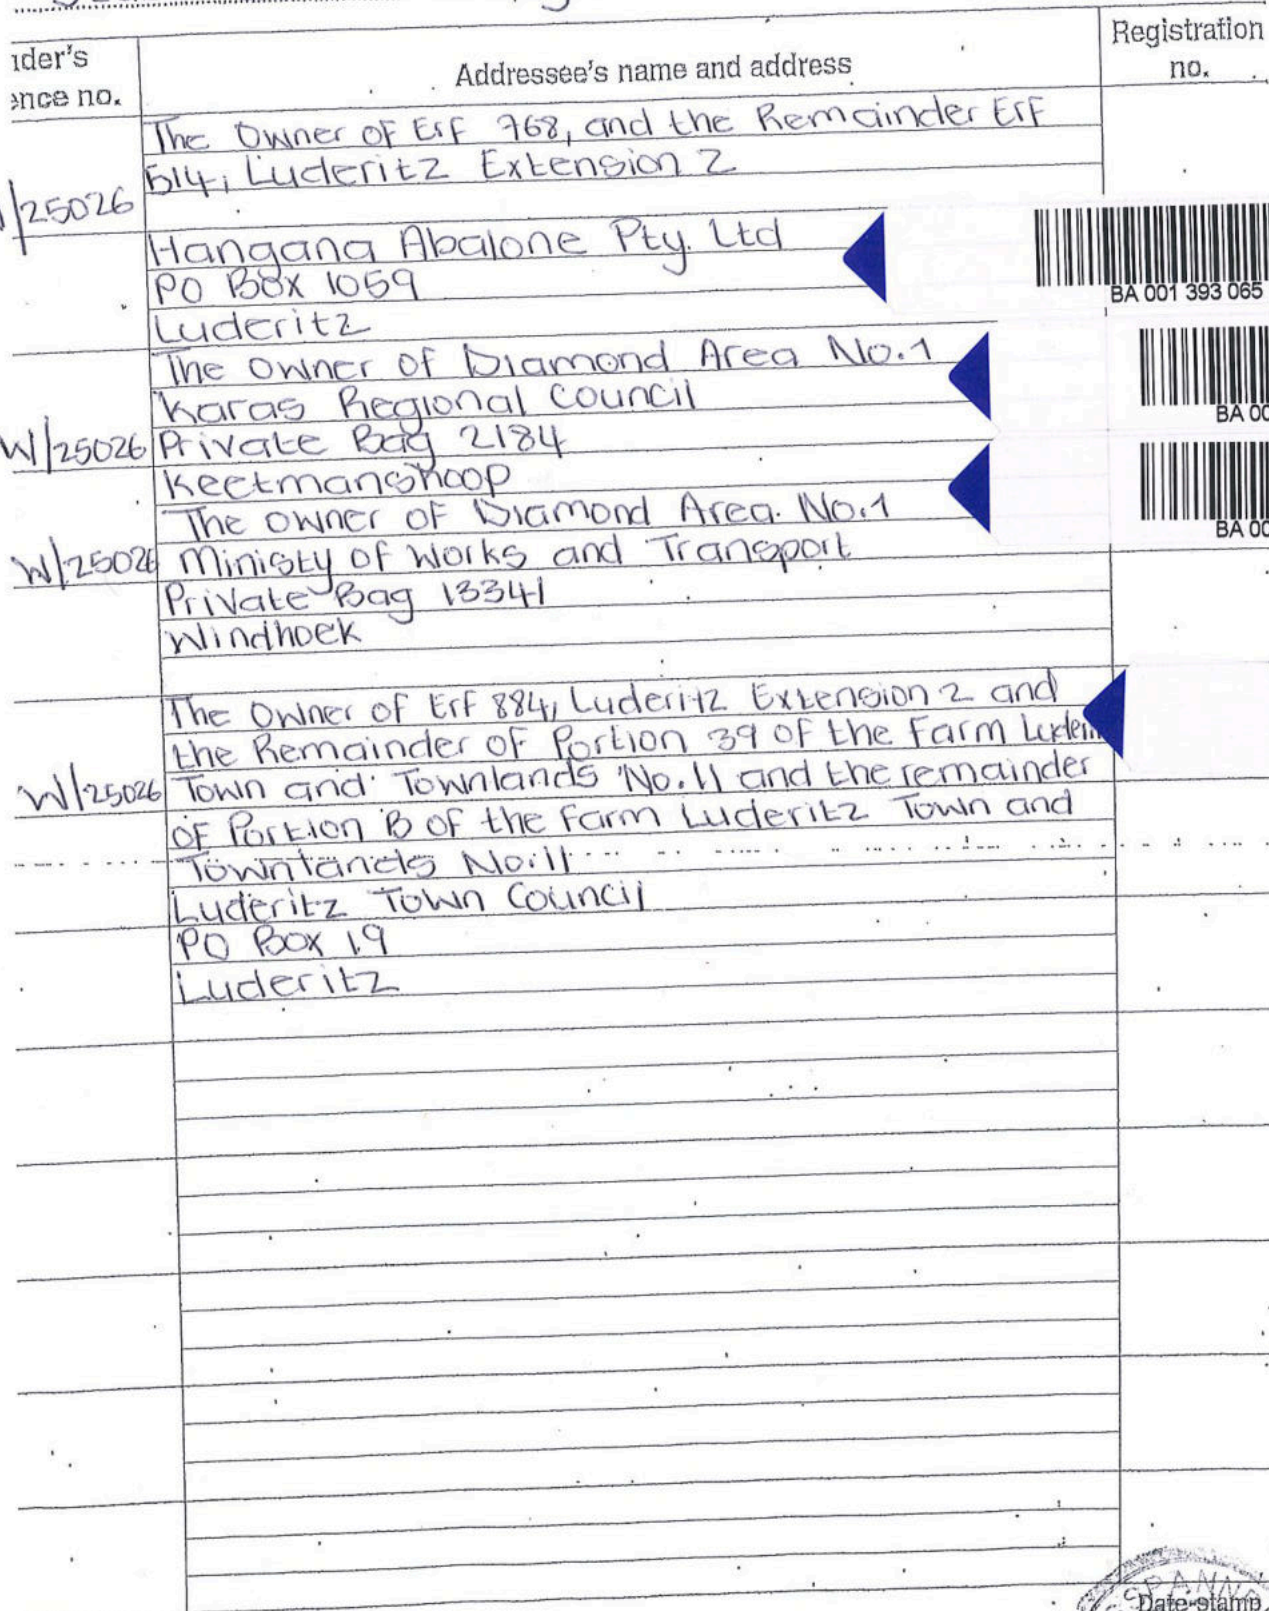 Registration
no.
ider's
ence no.
Addressee's name and address
The Owner of Erf 768, and the Remainder Erf
514, Luderitz Extension 2
/25026
Hangana Abalone Pty. Ltd
PO Box 1059
Luderitz
BA 001 393 065
The Owner of Diamond Area No.1
Karas Regional Council
W/25026 Private Bag 2184
Keetmanshoop
BA 00
The owner of Diamond Area. No.1
W/25026 Ministy of Works and Transport
Private Bag 13341
Windhoek
BA 00
The Owner of Erf 884, Luderitz Extension 2 and
the Remainder of Portion 39 of the Farm Luderi
W/25026 Town and Townlands No.11 and the remainder
of Portion B of the Farm Luderitz Town and
Townlands No.11
Luderitz Town Council
PO Box 19
Luderitz
Date-stamp